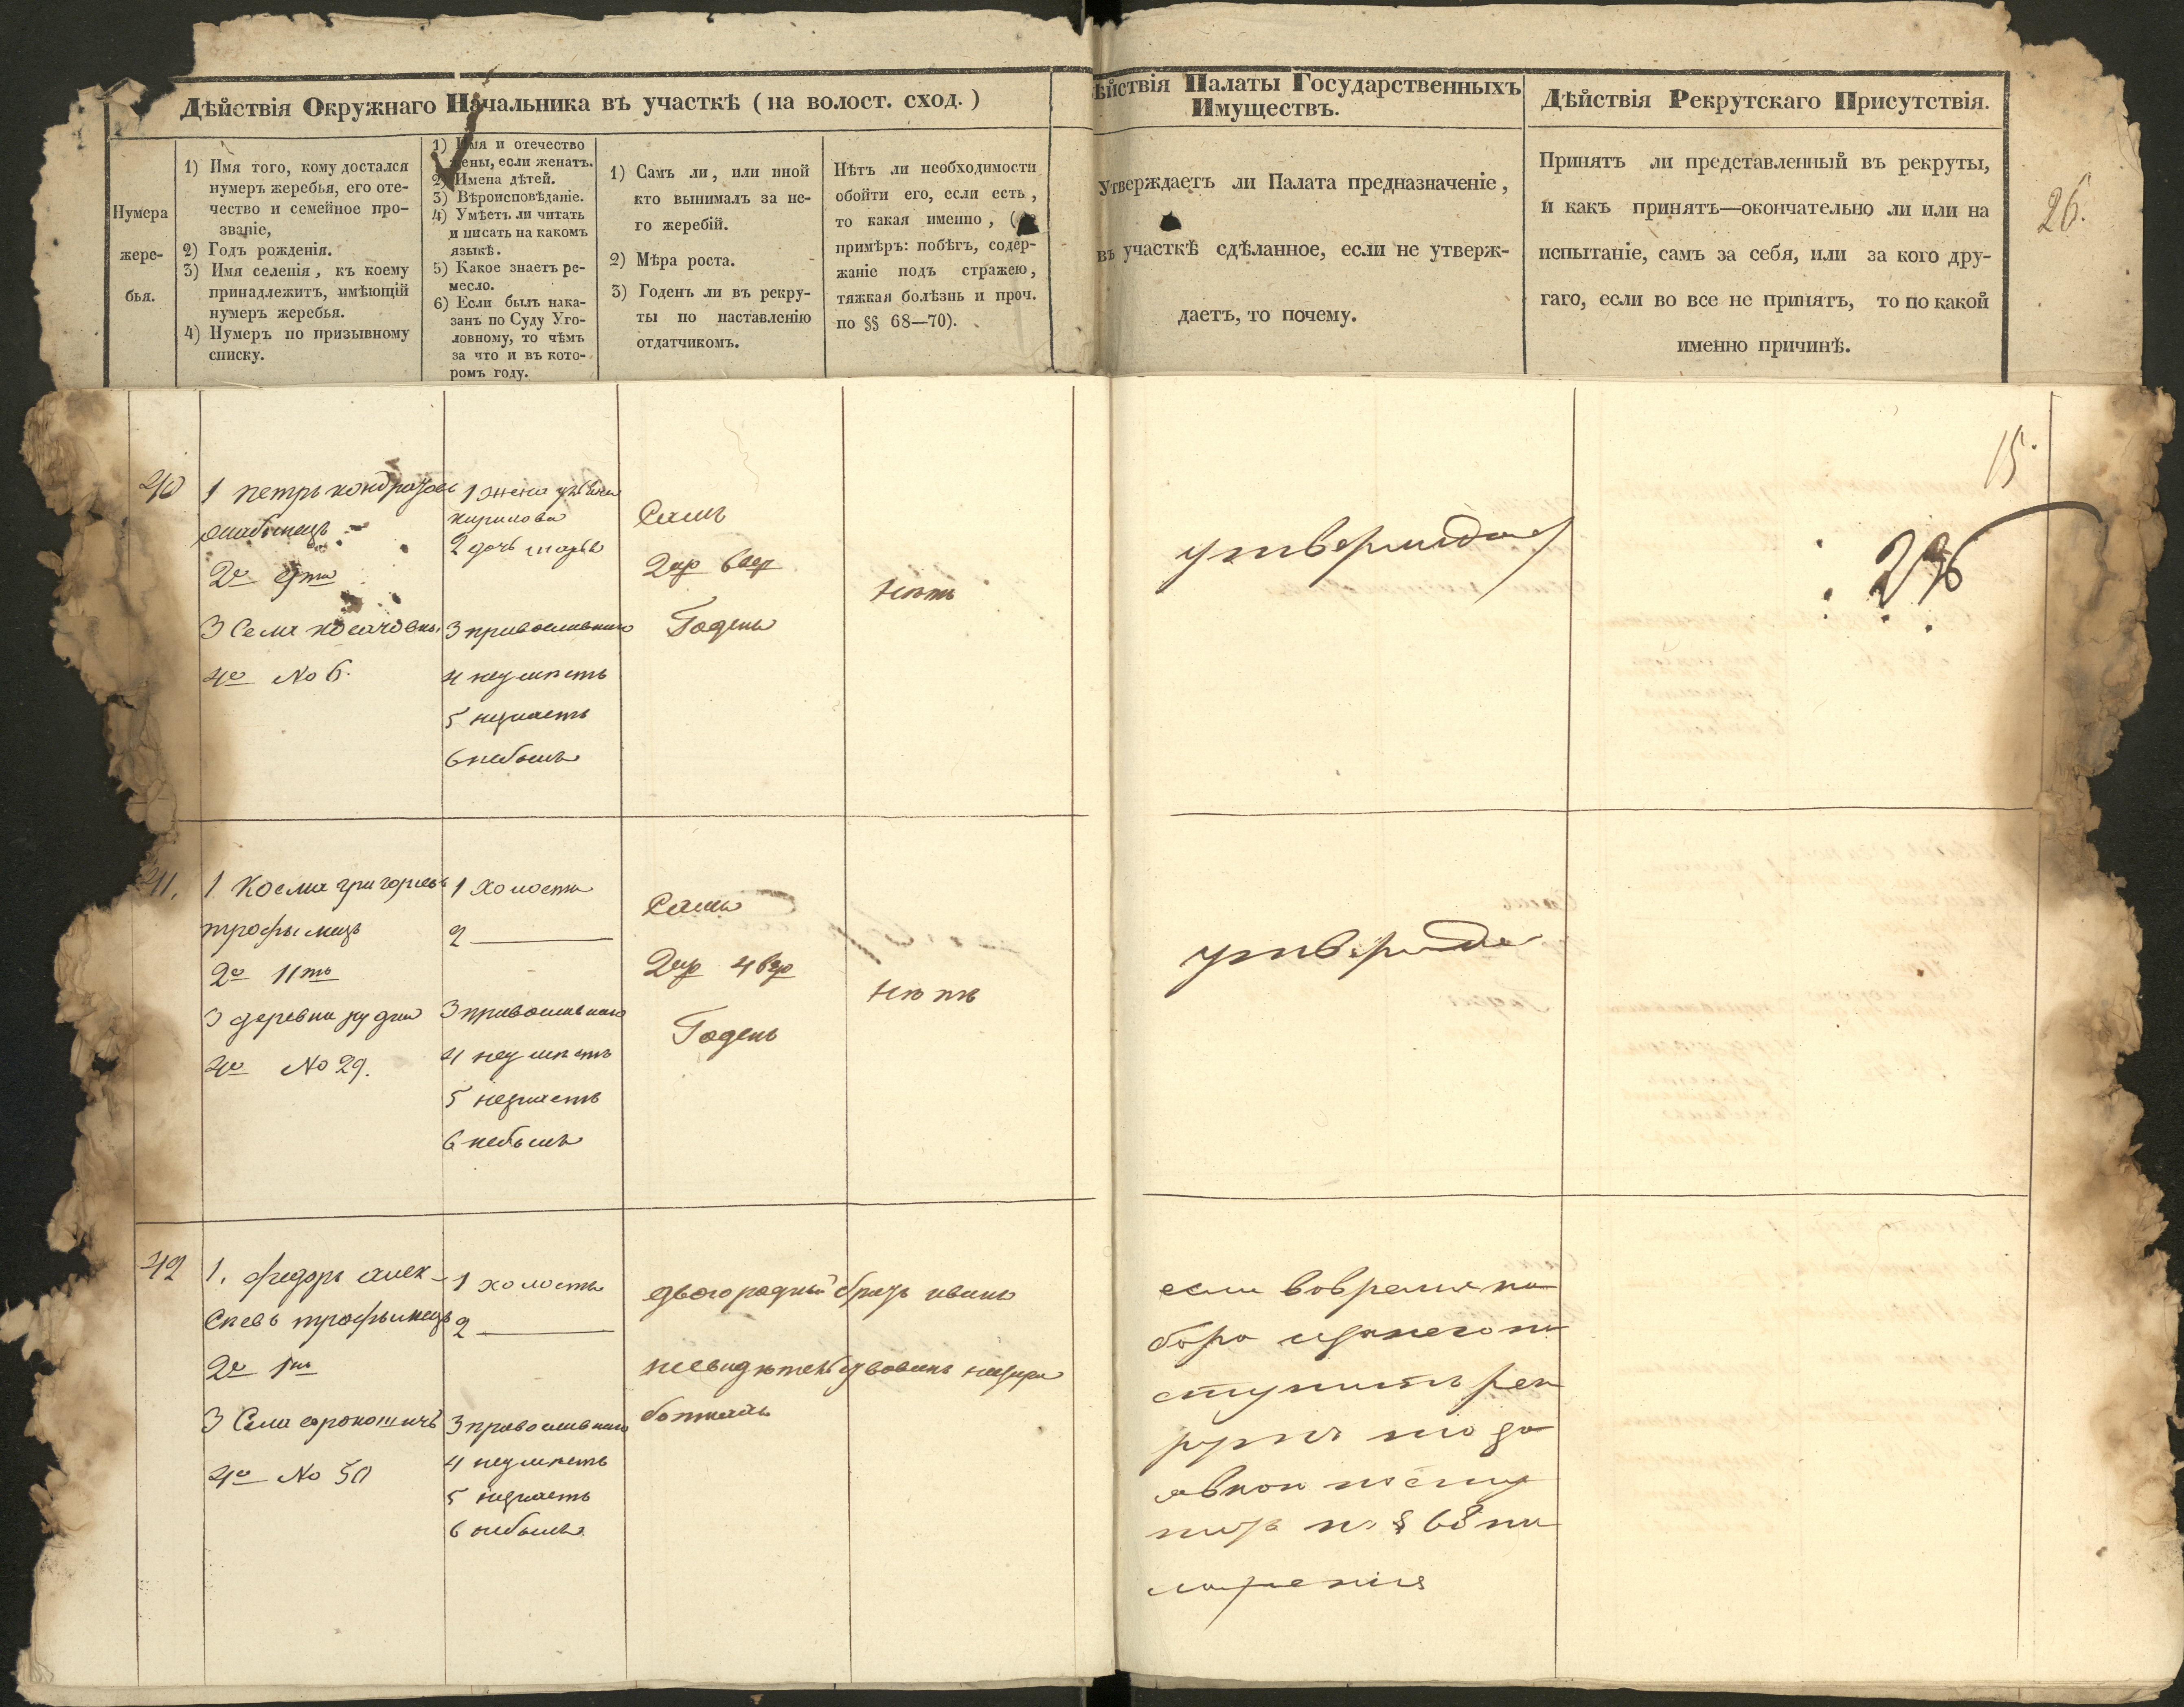 Дѣйствія Окружнаго Начальника въ участкѣ (на волост. сход.)
Нумера
жере-
бья.
1) Имя того, кому достался
нумеръ жеребья, его оте-
чество и семейное про-
званіе,
2) Годъ рожденія.
3) Имя селенія, къ коему
принадлежитъ, имѣющій
нумеръ жеребья.
4) Нумеръ по призывному
списку.
1) Имя и отечество
жены, если женатъ.
2) Имена дѣтей.
3) Вѣроисповѣданіе.
4) Умѣетъ ли читать
и писать на какомъ
языкѣ.
5) Какое знаетъ ре-
месло.
6) Если былъ нака-
занъ по Суду Уго-
ловному, то чѣмъ
за что и въ кото-
ромъ году.
1) Самъ ли, или иной
кто вынималъ за не-
го жеребій.
2) Мѣра роста.
3) Годенъ ли въ рекру-
ты по наставленію
отдатчикомъ.
Нѣтъ ли необходимости
обойти его, если есть,
то какая именно, (
примѣръ: побѣгъ, содер-
жаніе подъ стражею,
тяжкая болѣзнь и проч.
по §§ 68—70).
ѣйствія Палаты Государственныхъ
Имуществъ.
Утверждаетъ ли Палата предназначеніе,
въ участкѣ сдѣланное, если не утверж-
даетъ, то почему.
Дѣйствія Рекрутскаго Присутствія.
Принятъ ли представленный въ рекруты,
и какъ принятъ—окончательно ли или на
испытаніе, самъ за себя, или за кого дру-
гаго, если во все не принятъ, то по какой
именно причинѣ.
26.
15.
40
1 петръ кондратовъ
2е
3 Села
4е No 6.
1 жена
кирилова
2 дочь марья
3 православнаго
4 неумѣетъ
5 незнаетъ
6 небылъ
Самъ
2 ар 6 вер
Годенъ
Нѣтъ
утверждает
26
41.
1 Косма григорьевъ
трофимецъ
2е 11то
3 деревни рудни
4е No 29.
1 Холостъ
2 ———
3 православнаго
4 неумѣетъ
5 незнаетъ
6 небылъ
Самъ
2 ар 4 вер
Годенъ
Нѣтъ
утвержда
42
1. федоръ алек-
сѣевъ трофимецъ
2е
3 Села сорокошичъ
4е No 50
1 холостъ
2 ———
3 православнаго
4 неумѣетъ
5 незнаетъ
6 небылъ
двоюродный братъ иванъ
боткахъ
если вовремя на
бора изанего по
ступитъ рек
рутъ то за
явкою поступ
 § 68 по
ложенія